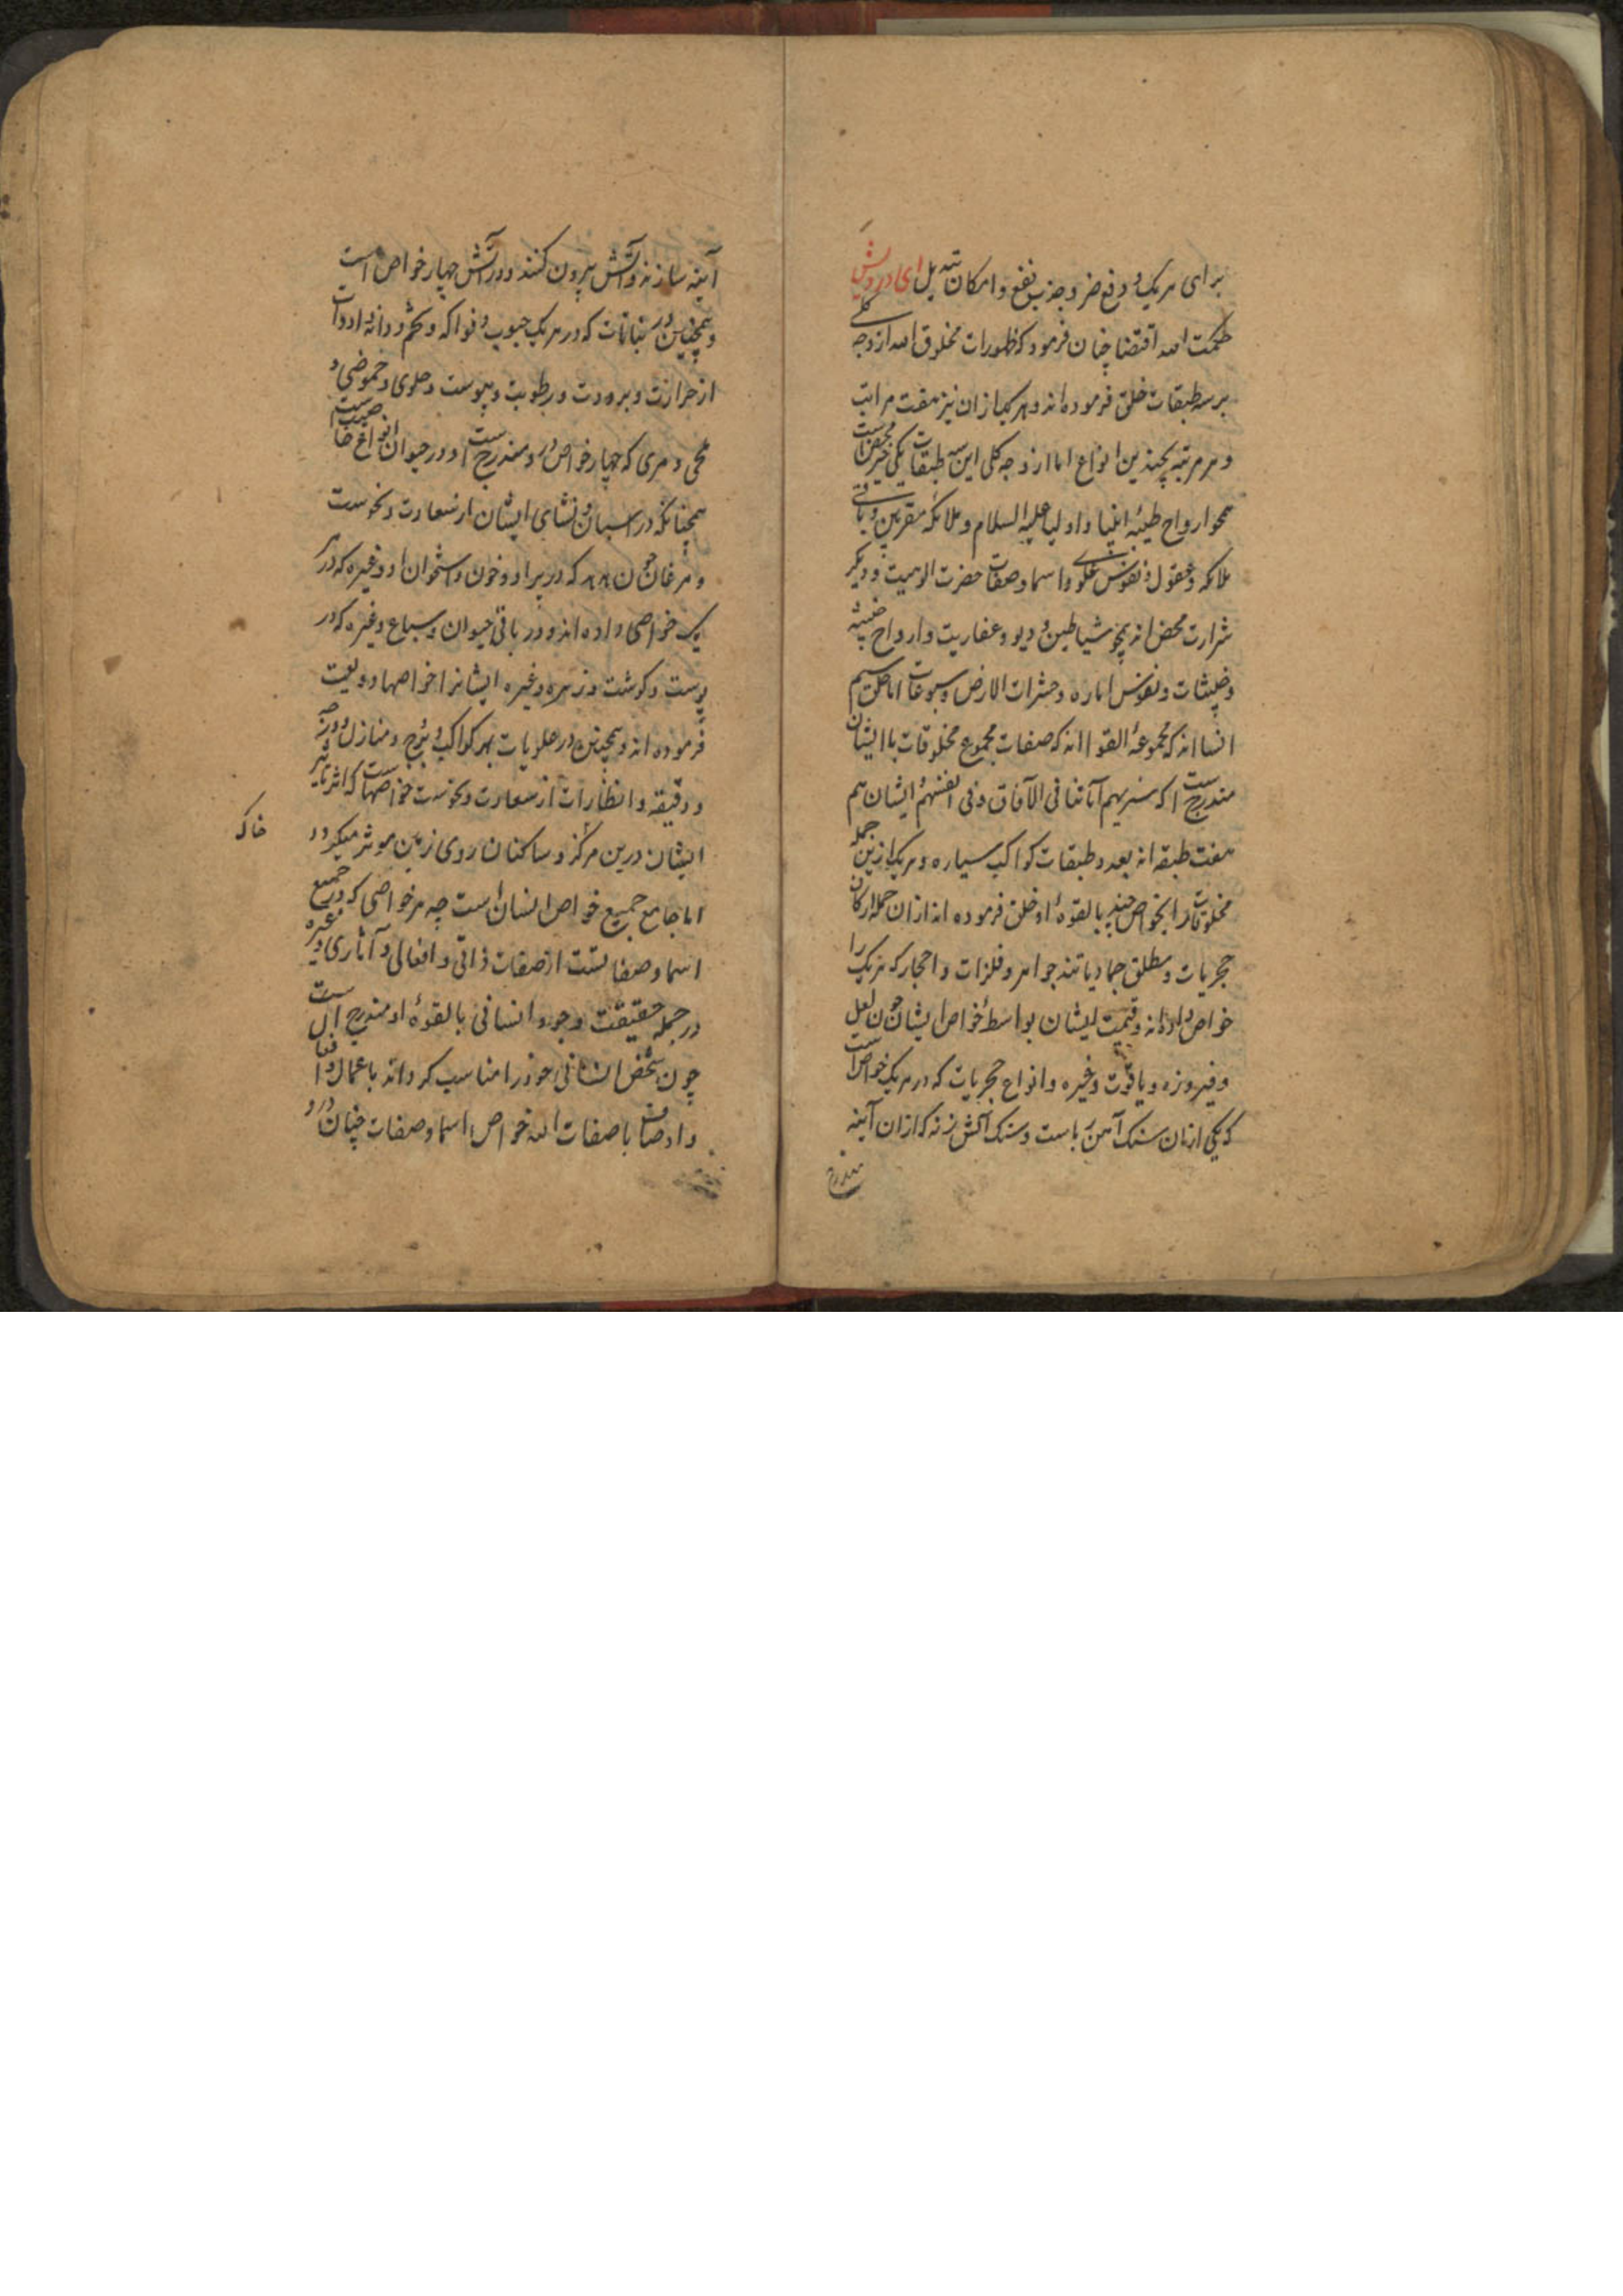 برای هریک و دفع ضر و جذب نفع و امکان تبدیل ای درویش
حکمت الله اقتضا چنان فرمود که ظهورات مخلوق الله از وجه کلی
بر سه طبقات خلق فرموده‌اند و هریک ازان نیز هفت مراتب
و هر مرتبه بچندین انواع اما از وجه کلی این سه طبقات یکی خیر محض است
همچو ارواح طیبه انبیا و اولیا علیه السلام و ملائکه مقربین و باقی
ملائکه و عقول و نفوس علوی و اسما و صفات حضرت الوهیت و دیگر
شرارت محض اند همچو شیاطین و دیو و عفاریت و ارواح خبیثه
و خبیثات و نفوس اماره و حشرات الارض و سبوعات اما خلق سیم
انسانند که مجموعهٔ القوااند که صفات مجموع مخلوقات با ایشان
مندرج است که سنریهم آیاتنا فی الآفاق و فی انفسهم ایشان هم
هفت طبقه اند بعدد طبقات کواکب سیاره و هریک ازین جمله
مخلوقات را بخواص چند بالقوهٔ او خلق فرموده‌اند ازان جمله ارکان
حجریات و مطلق جمادیاتند جواهر و فلزات و احجار که هریک را
خواص داده‌اند و قیمت ایشان بواسطهٔ خواص ایشان چون لعل
و فیروزه و یاقوت و غیره و انواع حجریات که در هریک خواص است
که یکی ازان سنک آهن رباست و سنک آتش زنه که ازان آینه
آینه سازند و آتش بیرون کنند و در آتش چهار خواص است
و همچنین در نباتات که در هریک حبوب و فواکه و تخم و دانه و ادوات
از حرارت و برودت و رطوبت و یبوست و حلوی و حموضی و
ملحی و مری که چهار خواص در و مندرج است و در حیوان انواع خاصیت است
همچنانکه در اسبان و نشای ایشان از سعادت و نحوست
و مرغان چون هما که در پر او و خون و استخوان او و غیره که در هر
یک خواصی داده‌اند و در باقی حیوان و سباع و غیره که در
پوست و کوشت و زهره و غیره ایشانرا خواصها ودیعت
فرموده‌اند و همچنین در علویات بهر کواکب و بروج و منازل و درجه
و دقیقه و انظارات از سعادت و نحوست خواصهاست که اثر تاثیر
ایشان درین مرکز و ساکنان روی زمین موثر میکردد
خاک
اما جامع جمیع خواص انسان است چه هر خواصی که در جمیع
اسما و صفاتست از صفات ذاتی و افعالی و آثاری و غیره
در جمله حقیقت وجود انسانی بالقوهٔ او مندرج است
چون شخص انسانی خود را مناسب کرداند باعمال و افعال
و اوصاف با صفات الله خواص اسما و صفات چنان درو
مندرج